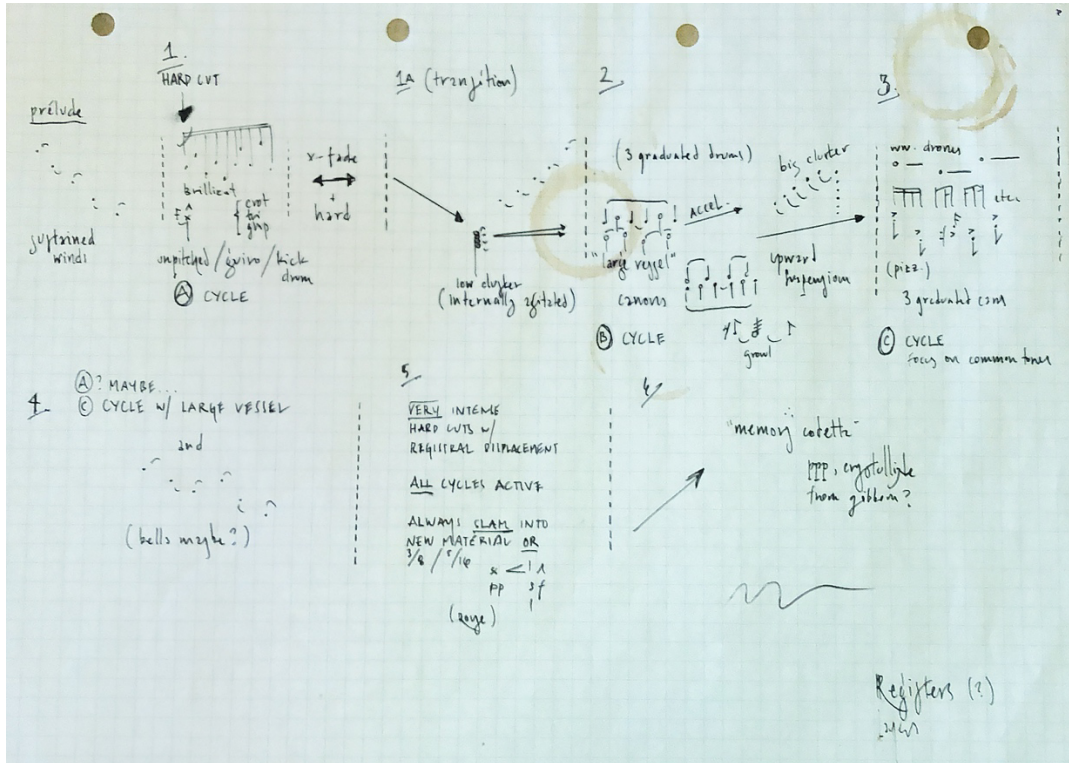 prélude
sustained
winds
1.
HARD CUT
Brilliant
crot
tri
unpitched/guiro/kick
drum
Ⓐ CYCLE
x-fade
+
hard
1A (transition)
low cluster
(internally agitated)
2.
(3 graduated drums)
ACCEL.
"large vessel"
canons
Ⓑ CYCLE
growl
big cluster
upward
suspensions
3.
ww. drones
etc.
(pizz.)
3 graduated cans
Ⓒ CYCLE
focus on common tones
4.
Ⓐ? MAYBE...
Ⓒ CYCLE W/ LARGE VESSEL
and
(bells maybe?)
5.
VERY INTENSE
HARD CUTS W/
REGISTRAL DISPLACEMENT
ALL CYCLES ACTIVE
ALWAYS SLAM INTO
NEW MATERIAL OR
3/8 / 5/16
pp sf
6.
"memory codetta"
ppp, crystalline
from gibbon?
Registers (?)